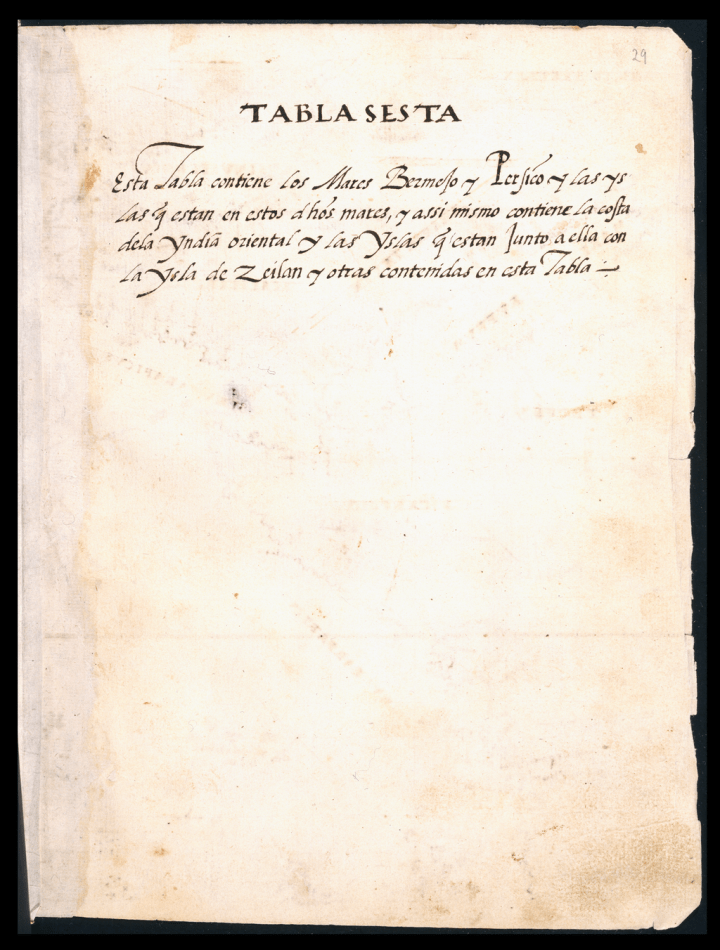 29
TABLA SESTA
Esta Tabla contiene los Mares Bermejo y Persico y las ys
las q̃ estan en estos dhos mares, y assi mismo contiene la costa
dela yndia oriental y las yslas q̃ estan Junto a ella con
la ysla de Zeilan y otras contenidas en esta Tabla